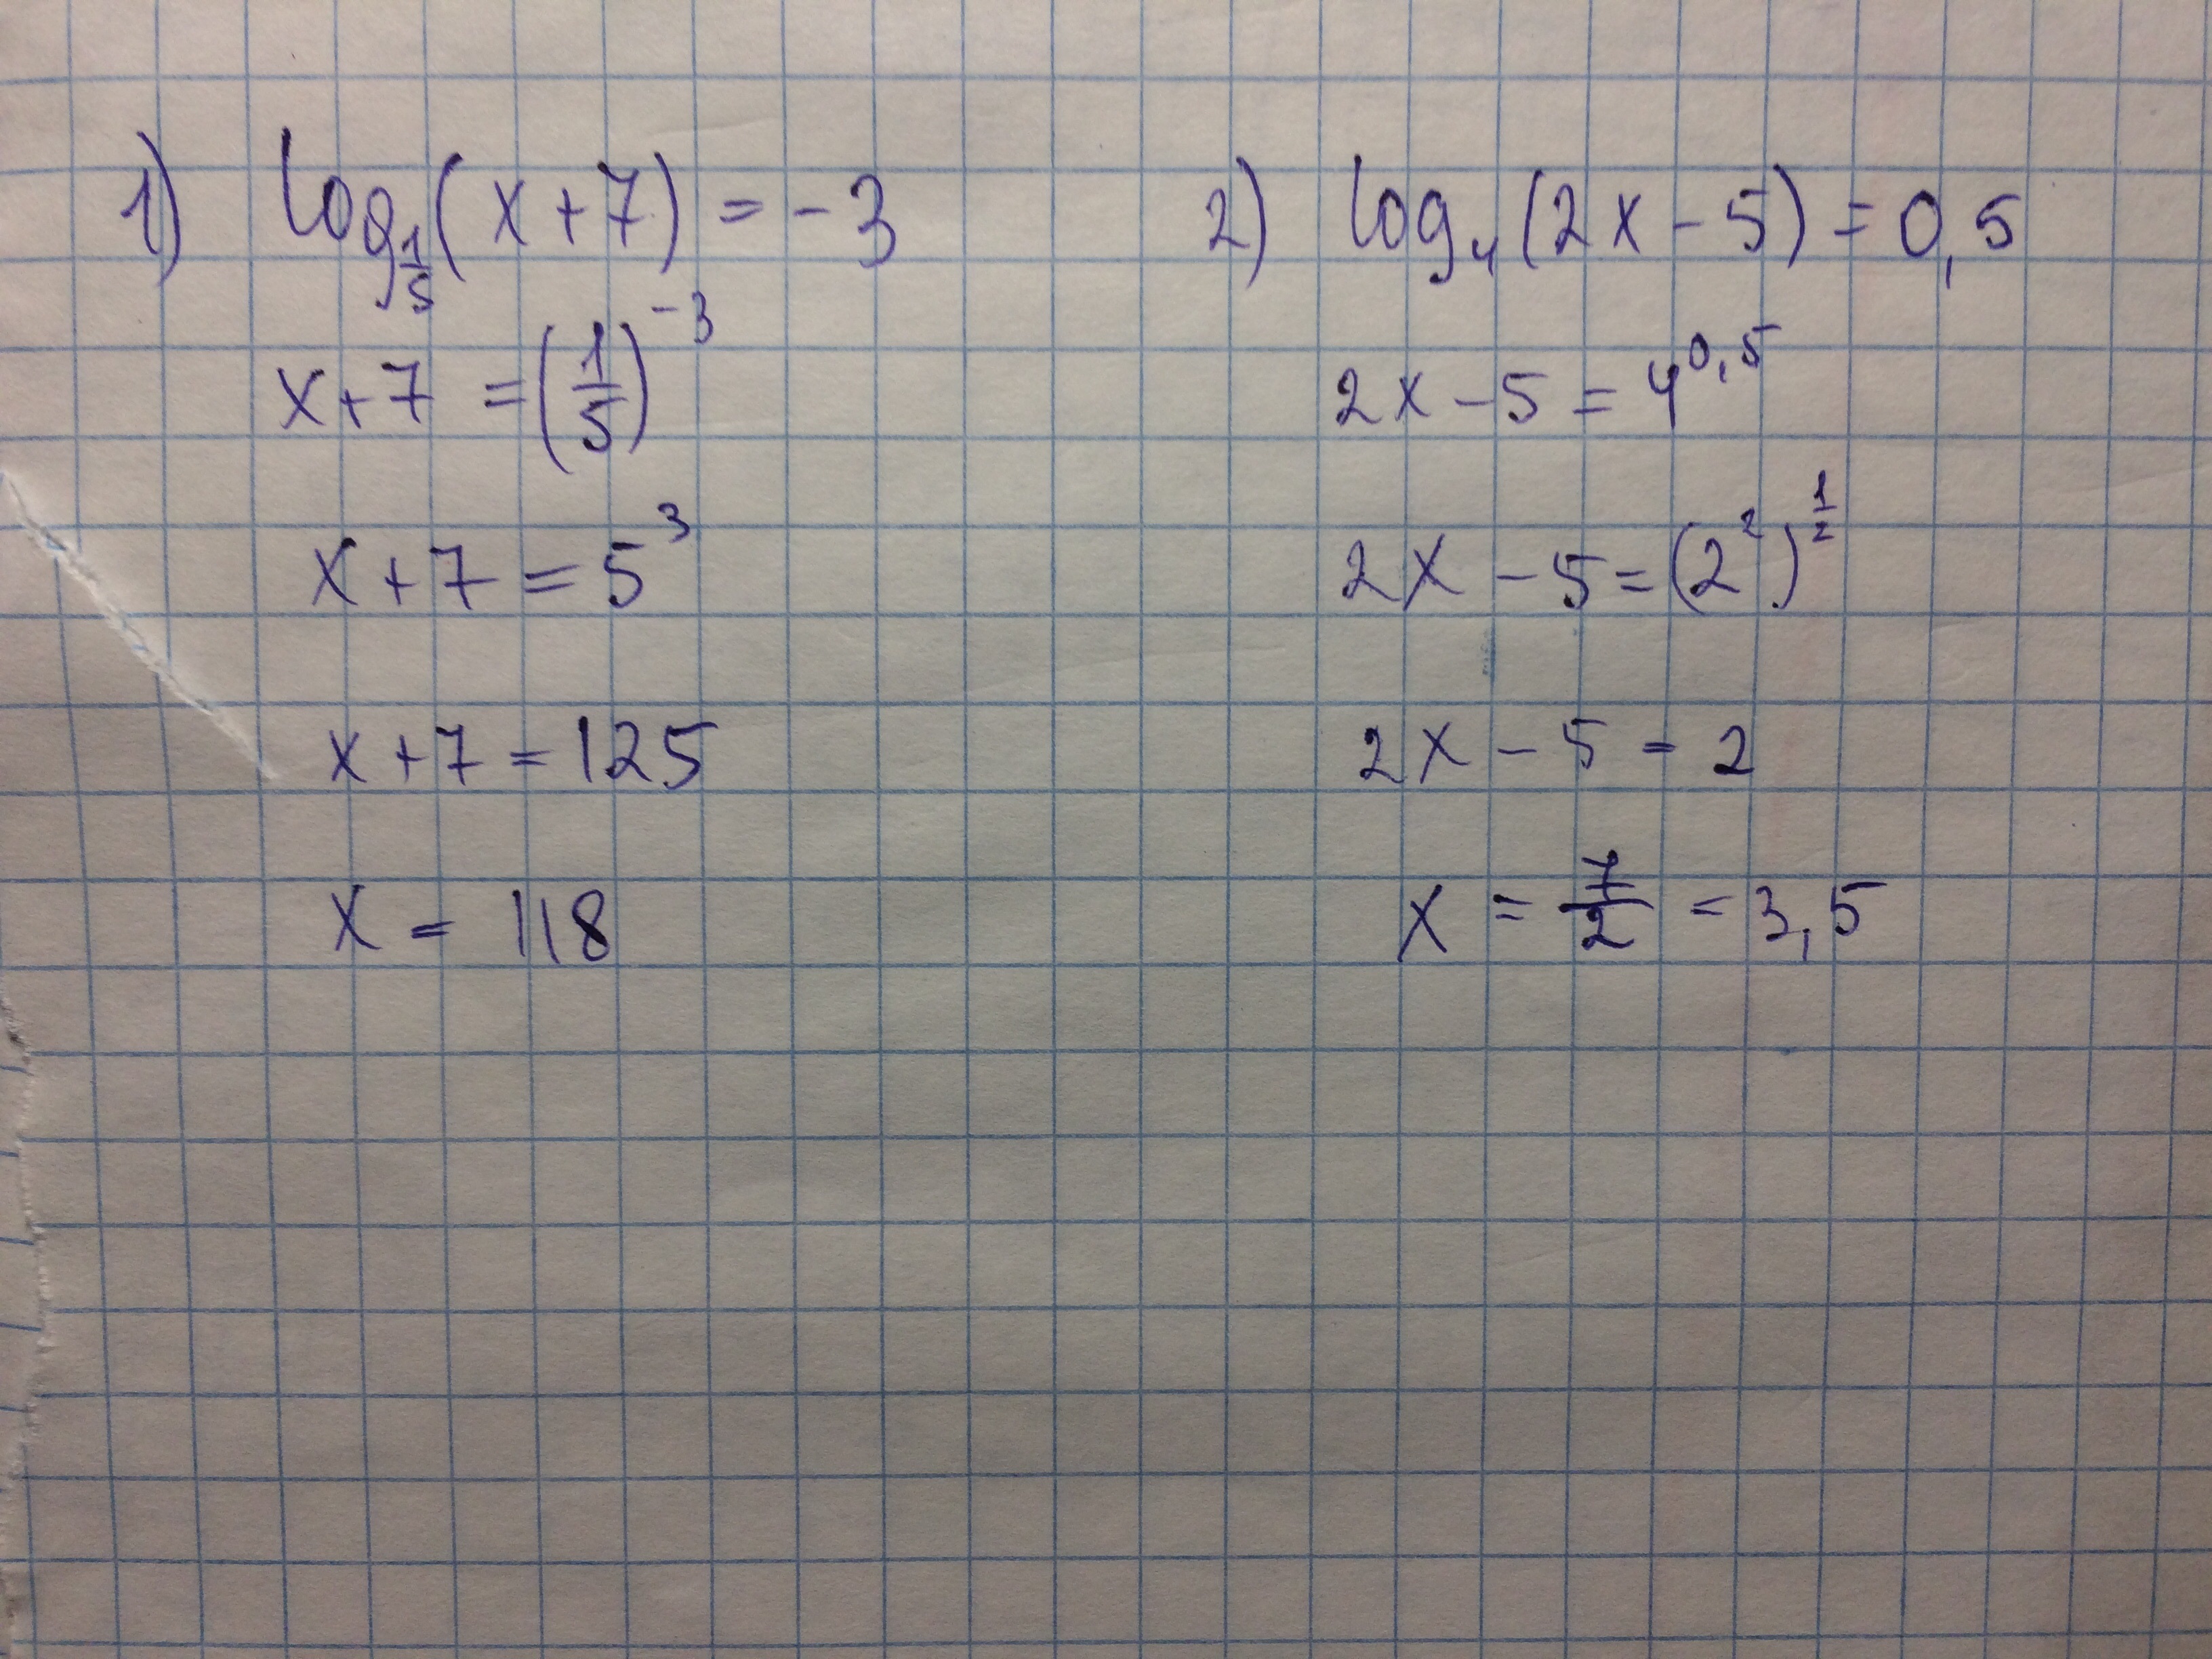 1) log_{1/5}(x+7) = -3
x+7 = (1/5)^{-3}
x+7 = 5^3
x+7 = 125
x = 118
2) log_4(2x-5) = 0,5
2x-5 = 4^{0,5}
2x-5 = (2^2)^{1/2}
2x-5 = 2
x = 7/2 = 3,5